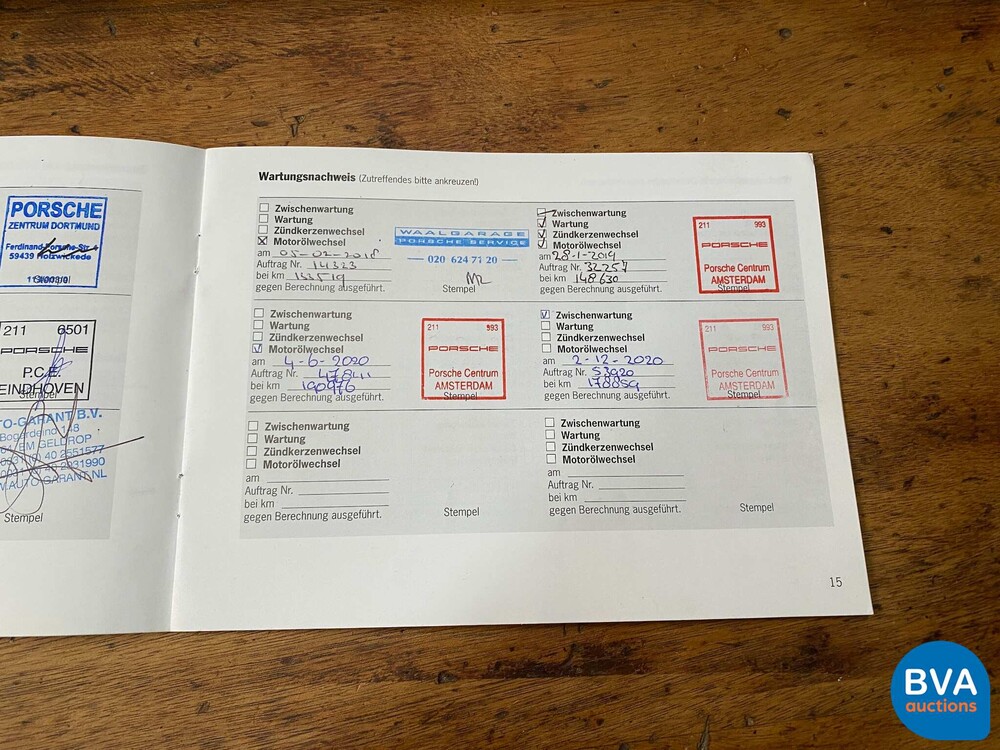 PORSCHE
ZENTRUM DORTMUND
Ferdinand-Porsche-Str.
59439 Holzwickede
Stempel
211 6501
PORSCHE
P.C.E.
EINDHOVEN
Stempel
TO-GARANT B.V.
Bogerdeind 148
BM GELDROP
40 2551577
2931990
W.AUTO-GARANT.NL
Stempel
Wartungsnachweis (Zutreffendes bitte ankreuzen!)
Zwischenwartung
Wartung
Zündkerzenwechsel
Motorölwechsel
am 05-02-2018
Auftrag Nr. 14323
bei km
gegen Berechnung ausgeführt.
WAALGARAGE
PORSCHE SERVICE
020 624 71 20
Stempel
Zwischenwartung
Wartung
Zündkerzenwechsel
Motorölwechsel
am 28-1-2019
Auftrag Nr. 32257
bei km 148630
gegen Berechnung ausgeführt.
211 993
PORSCHE
Porsche Centrum
AMSTERDAM
Stempel
Zwischenwartung
Wartung
Zündkerzenwechsel
Motorölwechsel
am 4-6-2020
Auftrag Nr. 47841
bei km
gegen Berechnung ausgeführt.
211 993
PORSCHE
Porsche Centrum
AMSTERDAM
Stempel
Zwischenwartung
Wartung
Zündkerzenwechsel
Motorölwechsel
am 2-12-2020
Auftrag Nr. 53920
bei km 178859
gegen Berechnung ausgeführt.
211 993
PORSCHE
Porsche Centrum
AMSTERDAM
Stempel
Zwischenwartung
Wartung
Zündkerzenwechsel
Motorölwechsel
am
Auftrag Nr.
bei km
gegen Berechnung ausgeführt.
Stempel
Zwischenwartung
Wartung
Zündkerzenwechsel
Motorölwechsel
am
Auftrag Nr.
bei km
gegen Berechnung ausgeführt.
Stempel
15
BVA
auctions